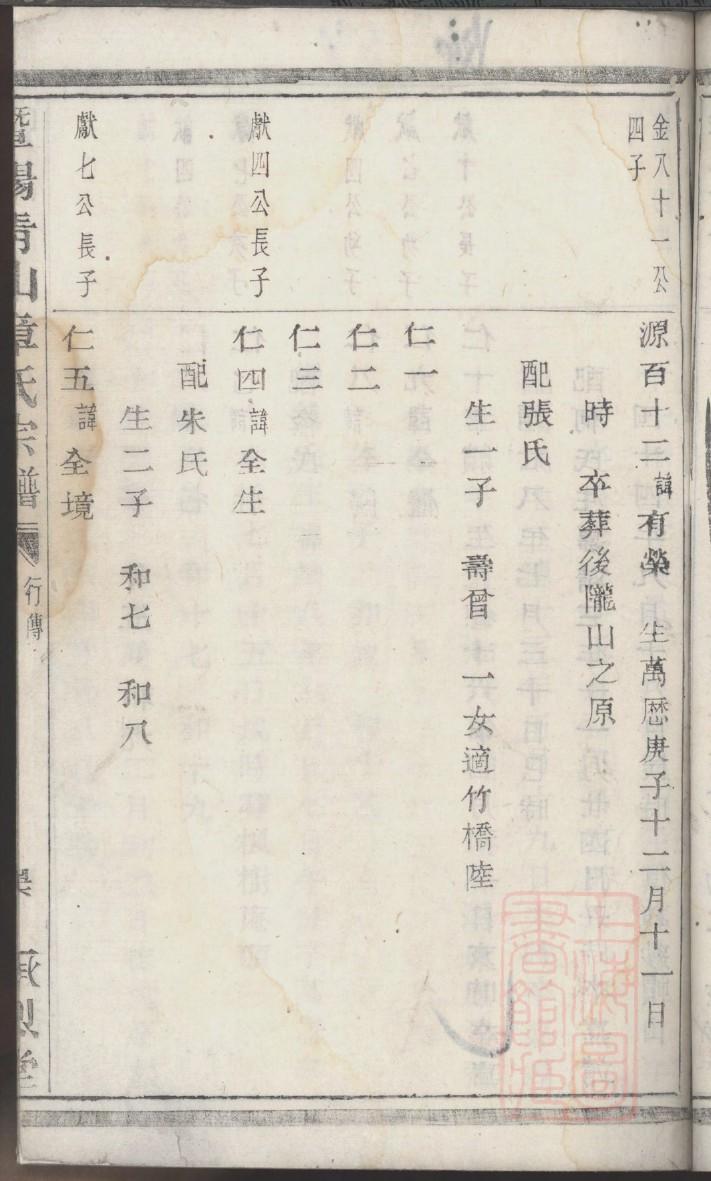 金八十一公
四子
源百十三諱有榮 生萬歷庚子十二月十一日
時 卒葬後隴山之原
配張氏
生一子 壽曾 一女適竹橋陸
仁一
仁二
仁三
獻四公長子
仁四諱全生
配朱氏
生二子 和七 和八
獻七公長子
仁五諱全境
暨陽青山章氏宗譜 行傳
上海圖書館藏